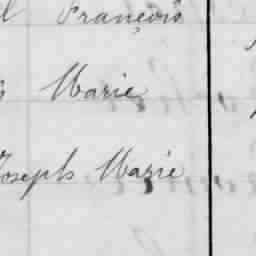 François
Marie
Joseph Marie